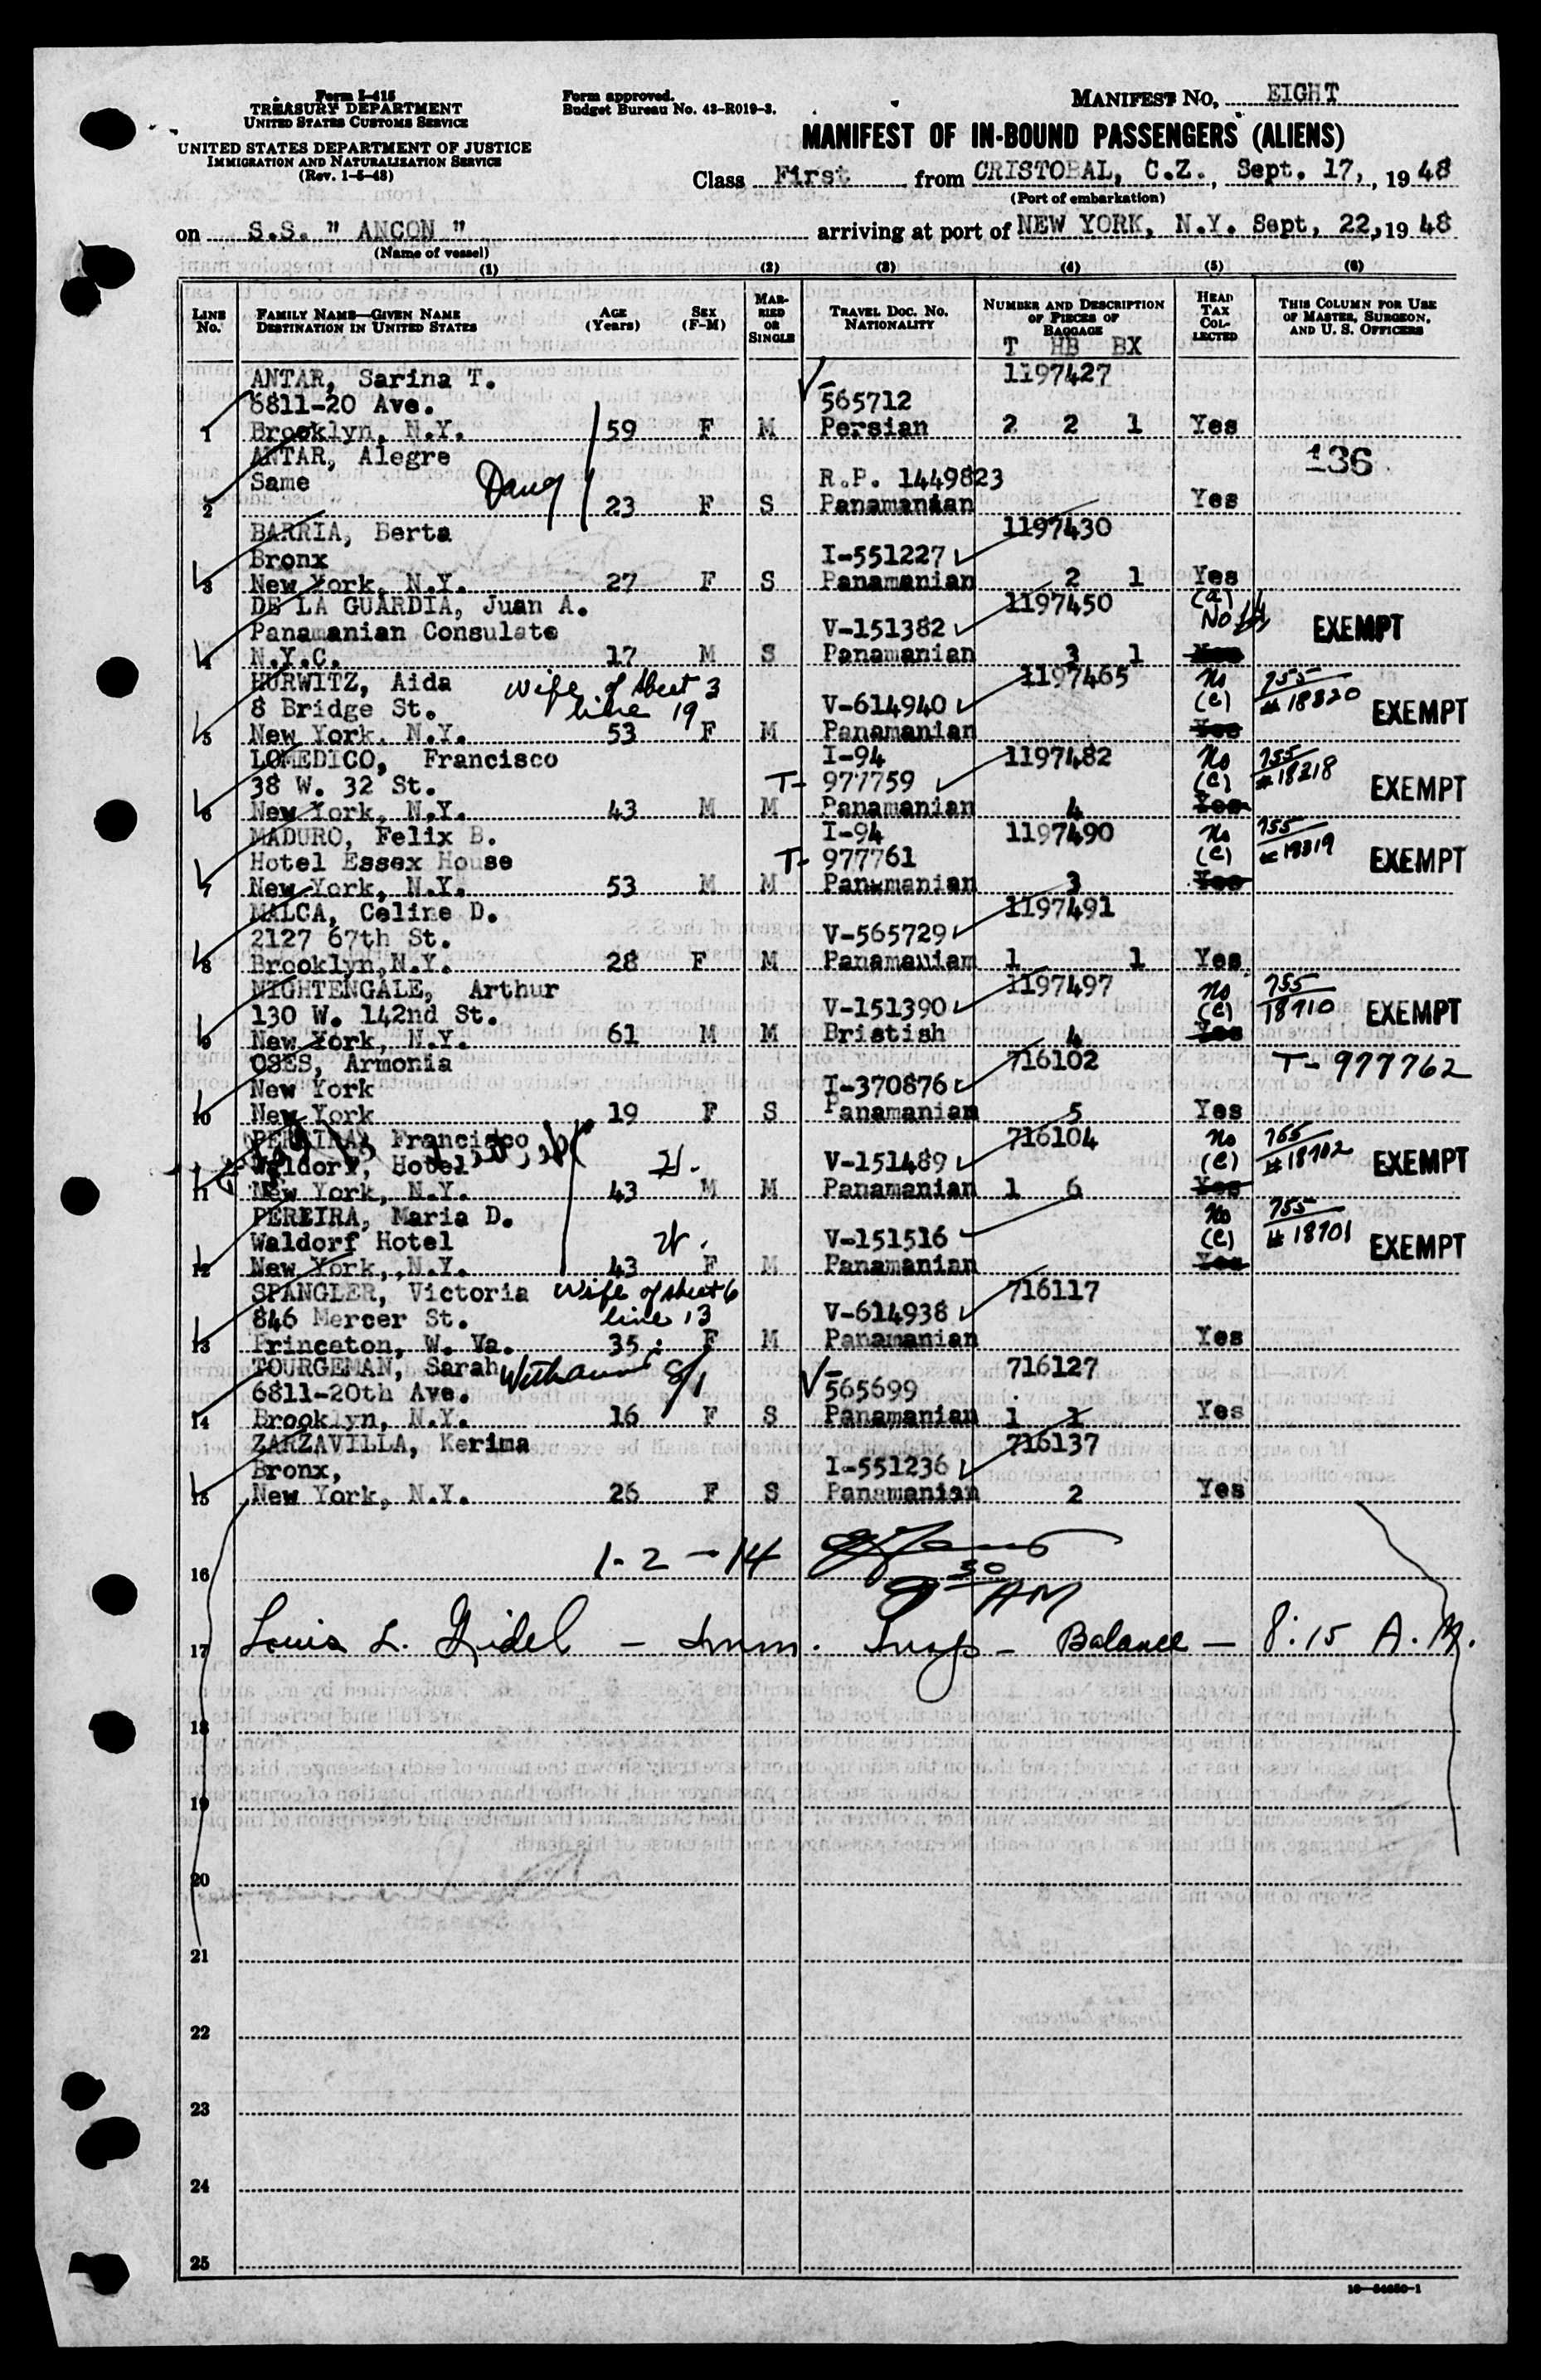 Form I-415
TREASURY DEPARTMENT
UNITED STATES CUSTOMS SERVICE
UNITED STATES DEPARTMENT OF JUSTICE
IMMIGRATION AND NATURALIZATION SERVICE
(Rev. 1-5-48)
Form approved.
Budget Bureau No. 43-R019-3.
MANIFEST NO. EIGHT
MANIFEST OF IN-BOUND PASSENGERS (ALIENS)
Class First from CRISTOBAL, C.Z., Sept. 17, , 19 48
(Port of embarkation)
on S.S. " ANCON " arriving at port of NEW YORK, N.Y. Sept. 22, 19 48
(Name of vessel)
(1) (2) (3) (4) (5) (6)
LINE No. FAMILY NAME—GIVEN NAME DESTINATION IN UNITED STATES AGE (Years) SEX (F-M) MARRIED OR SINGLE TRAVEL DOC. NO. NATIONALITY NUMBER AND DESCRIPTION OF PIECES OF BAGGAGE HEAD TAX COLLECTED THIS COLUMN FOR USE OF MASTER, SURGEON, AND U. S. OFFICERS
T HB BX
ANTAR, Sarina T. 1197427
6811-20 Ave. V- 565712
1 Brooklyn, N.Y. 59 F M Persian 2 2 1 Yes
ANTAR, Alegre 136
Same Daug R.P. 1449823
2 23 F S Panamanian Yes
BARRIA, Berta 1197430
Bronx I-551227
3 New York, N.Y. 27 F S Panamanian 2 1 Yes
DE LA GUARDIA, Juan A. 1197450 (a)
Panamanian Consulate V-151382 No EXEMPT
4 N.Y.C. 17 M S Panamanian 3 1 Yes
HURWITZ, Aida wife of sheet 3 1197465 No 755
8 Bridge St. line 19 V-614940 (e) # 18820 EXEMPT
5 New York, N.Y. 53 F M Panamanian Yes
LOMEDICO, Francisco I-94 1197482 No 755
38 W. 32 St. T- 977759 (e) # 18218 EXEMPT
6 New York, N.Y. 43 M M Panamanian 4 Yes
MADURO, Felix B. I-94 1197490 No 755
Hotel Essex House T- 977761 (e) # 18819 EXEMPT
7 New York, N.Y. 53 M M Panamanian 3 Yes
MALCA, Celine D. 1197491
2127 67th St. V-565729
8 Brooklyn,N.Y. 28 F M Panamauiam 1 1 Yes
NIGHTENGALE, Arthur 1197497 No 755
130 W. 142nd St. V-151390 (e) 18910 EXEMPT
9 New York, N.Y. 61 M M Bristish 4 Yes
OSES, Armonia 716102 T- 977762
New York I-370876
10 New York 19 F S Panamanian 5 Yes
PEREIRA, Francisco 716104 No 755
Waldorf, Hotel V-151489 (e) # 18702 EXEMPT
11 New York, N.Y. 43 M M Panamanian 1 6 Yes
PEREIRA, Maria D. No 755
Waldorf Hotel V-151516 (e) # 18701 EXEMPT
12 New York,,N.Y. 43 F M Panamanian Yes
SPANGLER, Victoria Wife of sheet 6 716117
846 Mercer St. line 13 V-614938
13 Princeton, W. Va. 35 F M Panamanian Yes
TOURGEMAN, Sarah With aunt 8/1 716127
6811-20th Ave. V- 565699
14 Brooklyn, N.Y. 16 F S Panamanian 1 1 Yes
ZARZAVILLA, Kerima 716137
Bronx, I-551236
15 New York, N.Y. 26 F S Panamanian 2 Yes
16 1-2-14
9 30 AM
17 Louis L. Gidel - Imm. Insp - Balance - 8:15 A.M.
18
19
20
21
22
23
24
25
16—54650-1